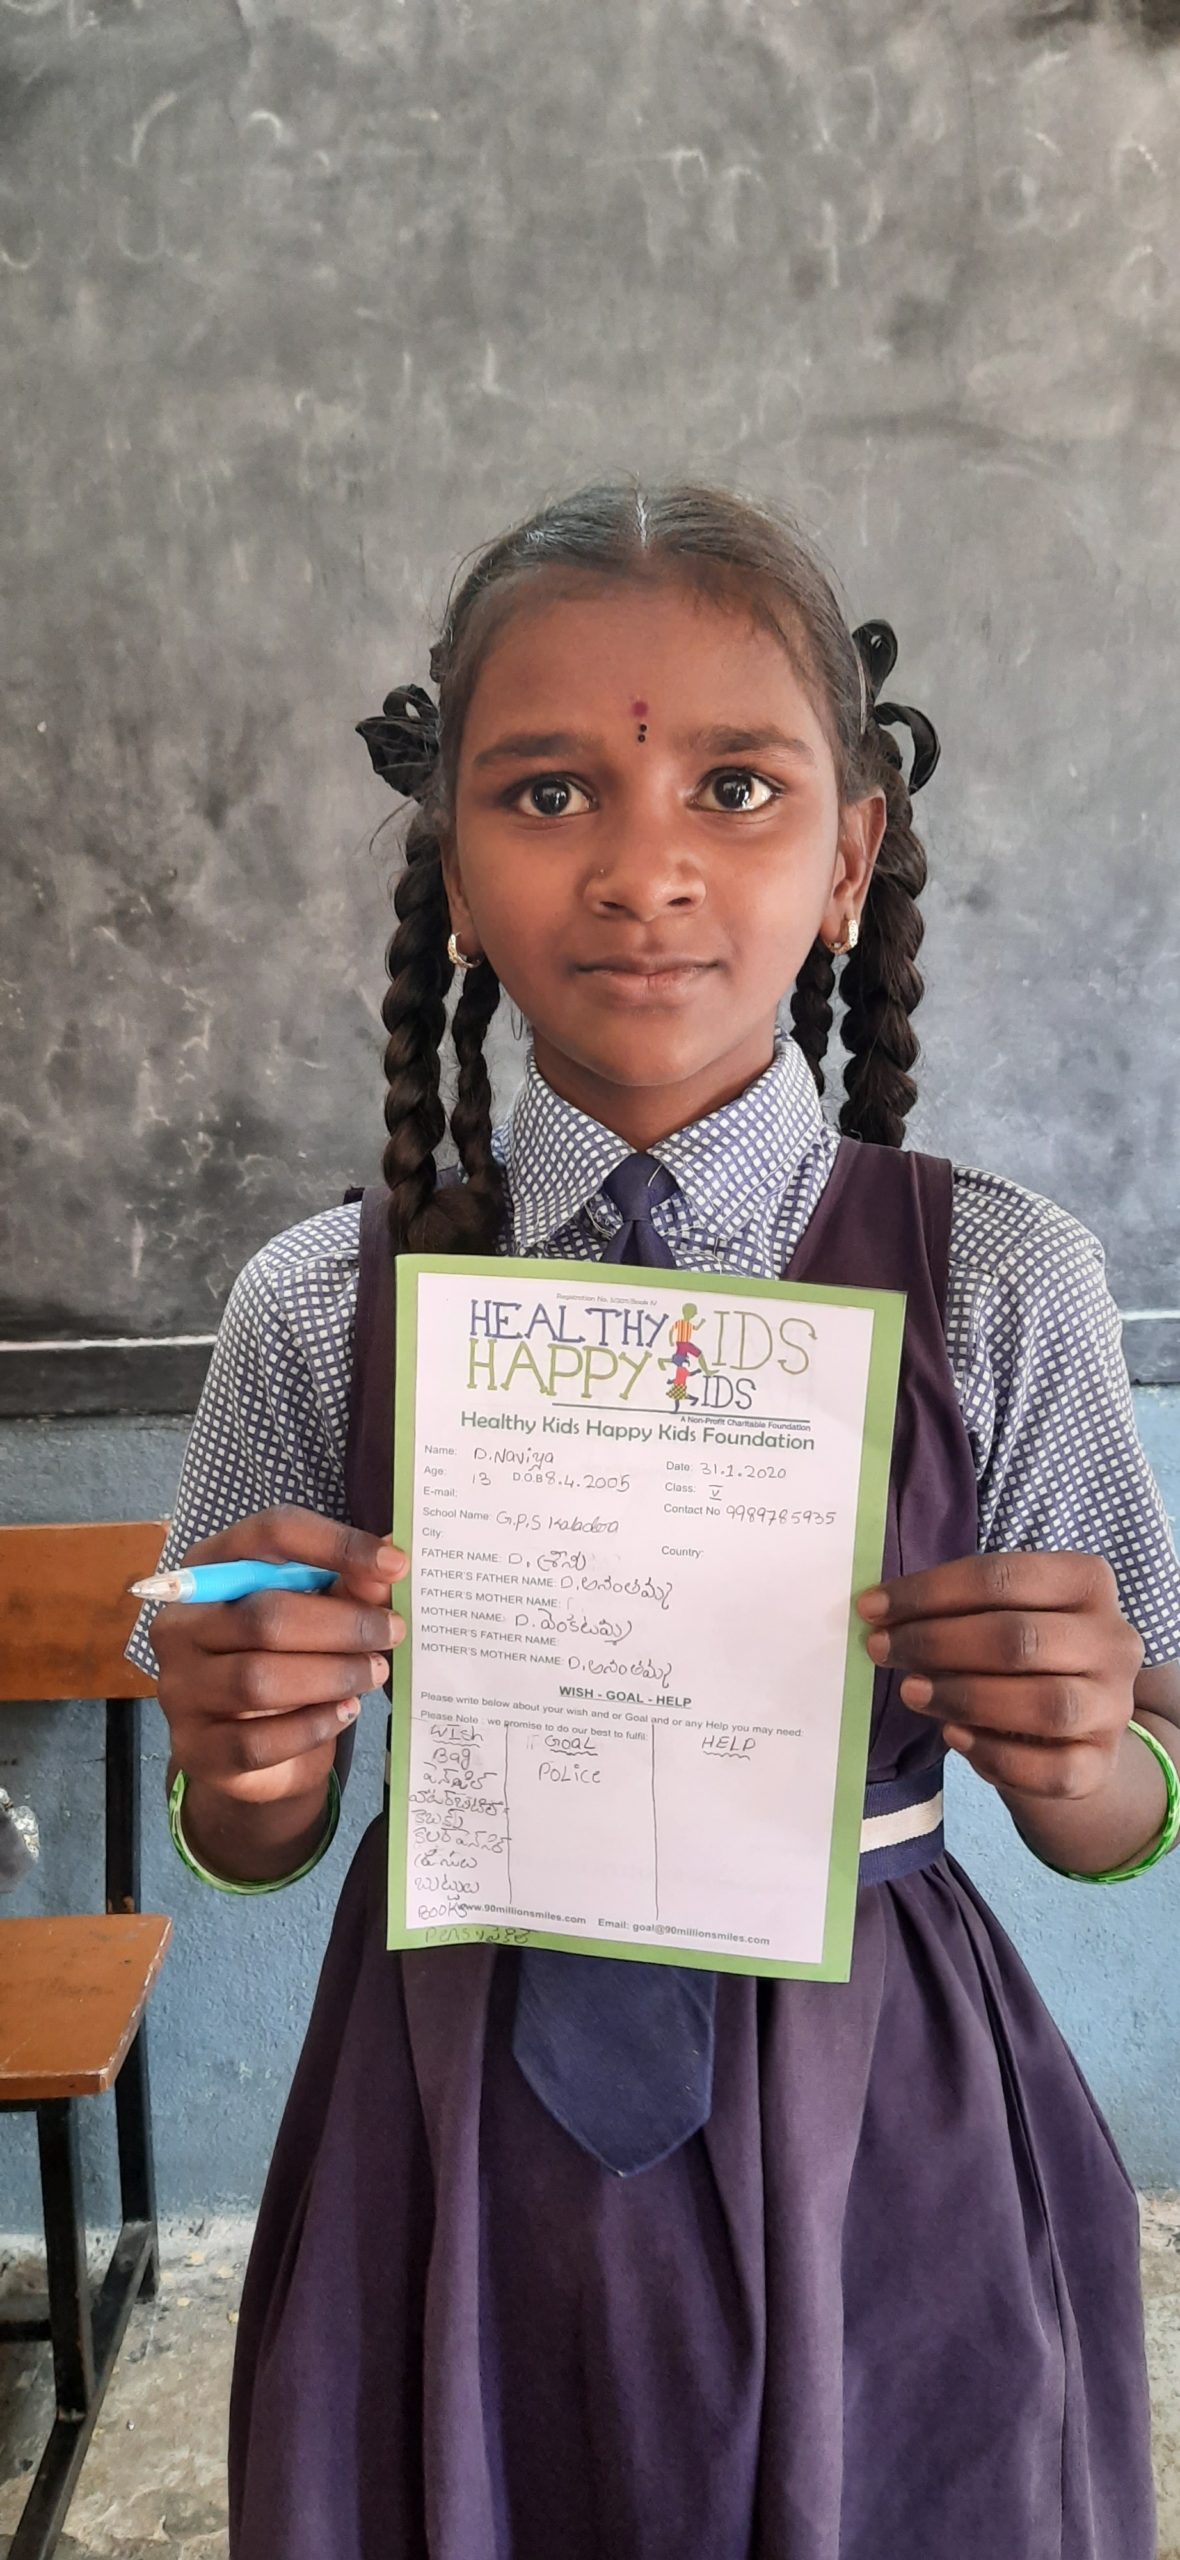 HEALTHY KIDS
HAPPY KIDS
A Non-Profit Charitable Foundation
Healthy Kids Happy Kids Foundation
Name: D.Naviya
Date: 31.1.2020
Age: 13 D.O.B 8.4.2005
Class: V
E-mail:
Contact No 9989785935
School Name: G.P.S
City:
Country:
FATHER NAME: D. శ్రీను
FATHER'S FATHER NAME: D.అనంతమ్మ
FATHER'S MOTHER NAME:
MOTHER NAME: D. వెంకటమ్మ
MOTHER'S FATHER NAME:
MOTHER'S MOTHER NAME: D.అనంతమ్మ
WISH - GOAL - HELP
Please write below about your wish and or Goal and or any Help you may need:
Please Note : we promise to do our best to fulfil:
WISh GOAL HELP
Bag POLICE
బుట్టలు
BOOKS
www.90millionsmiles.com Email: goal@90millionsmiles.com